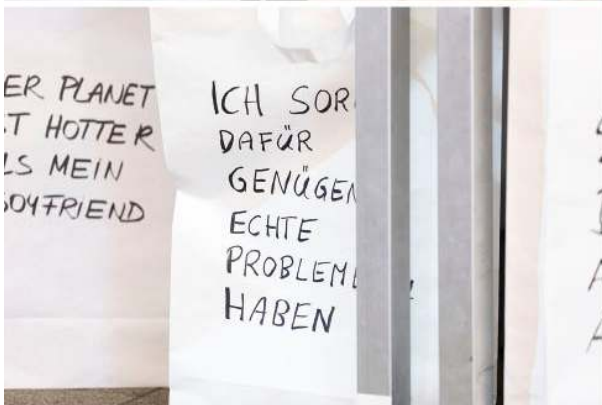 ER PLANET
T HOTTER
LS MEIN
BOYFRIEND
ICH SOR
DAFÜR
GENÜGEN
ECHTE
PROBLEME
HABEN